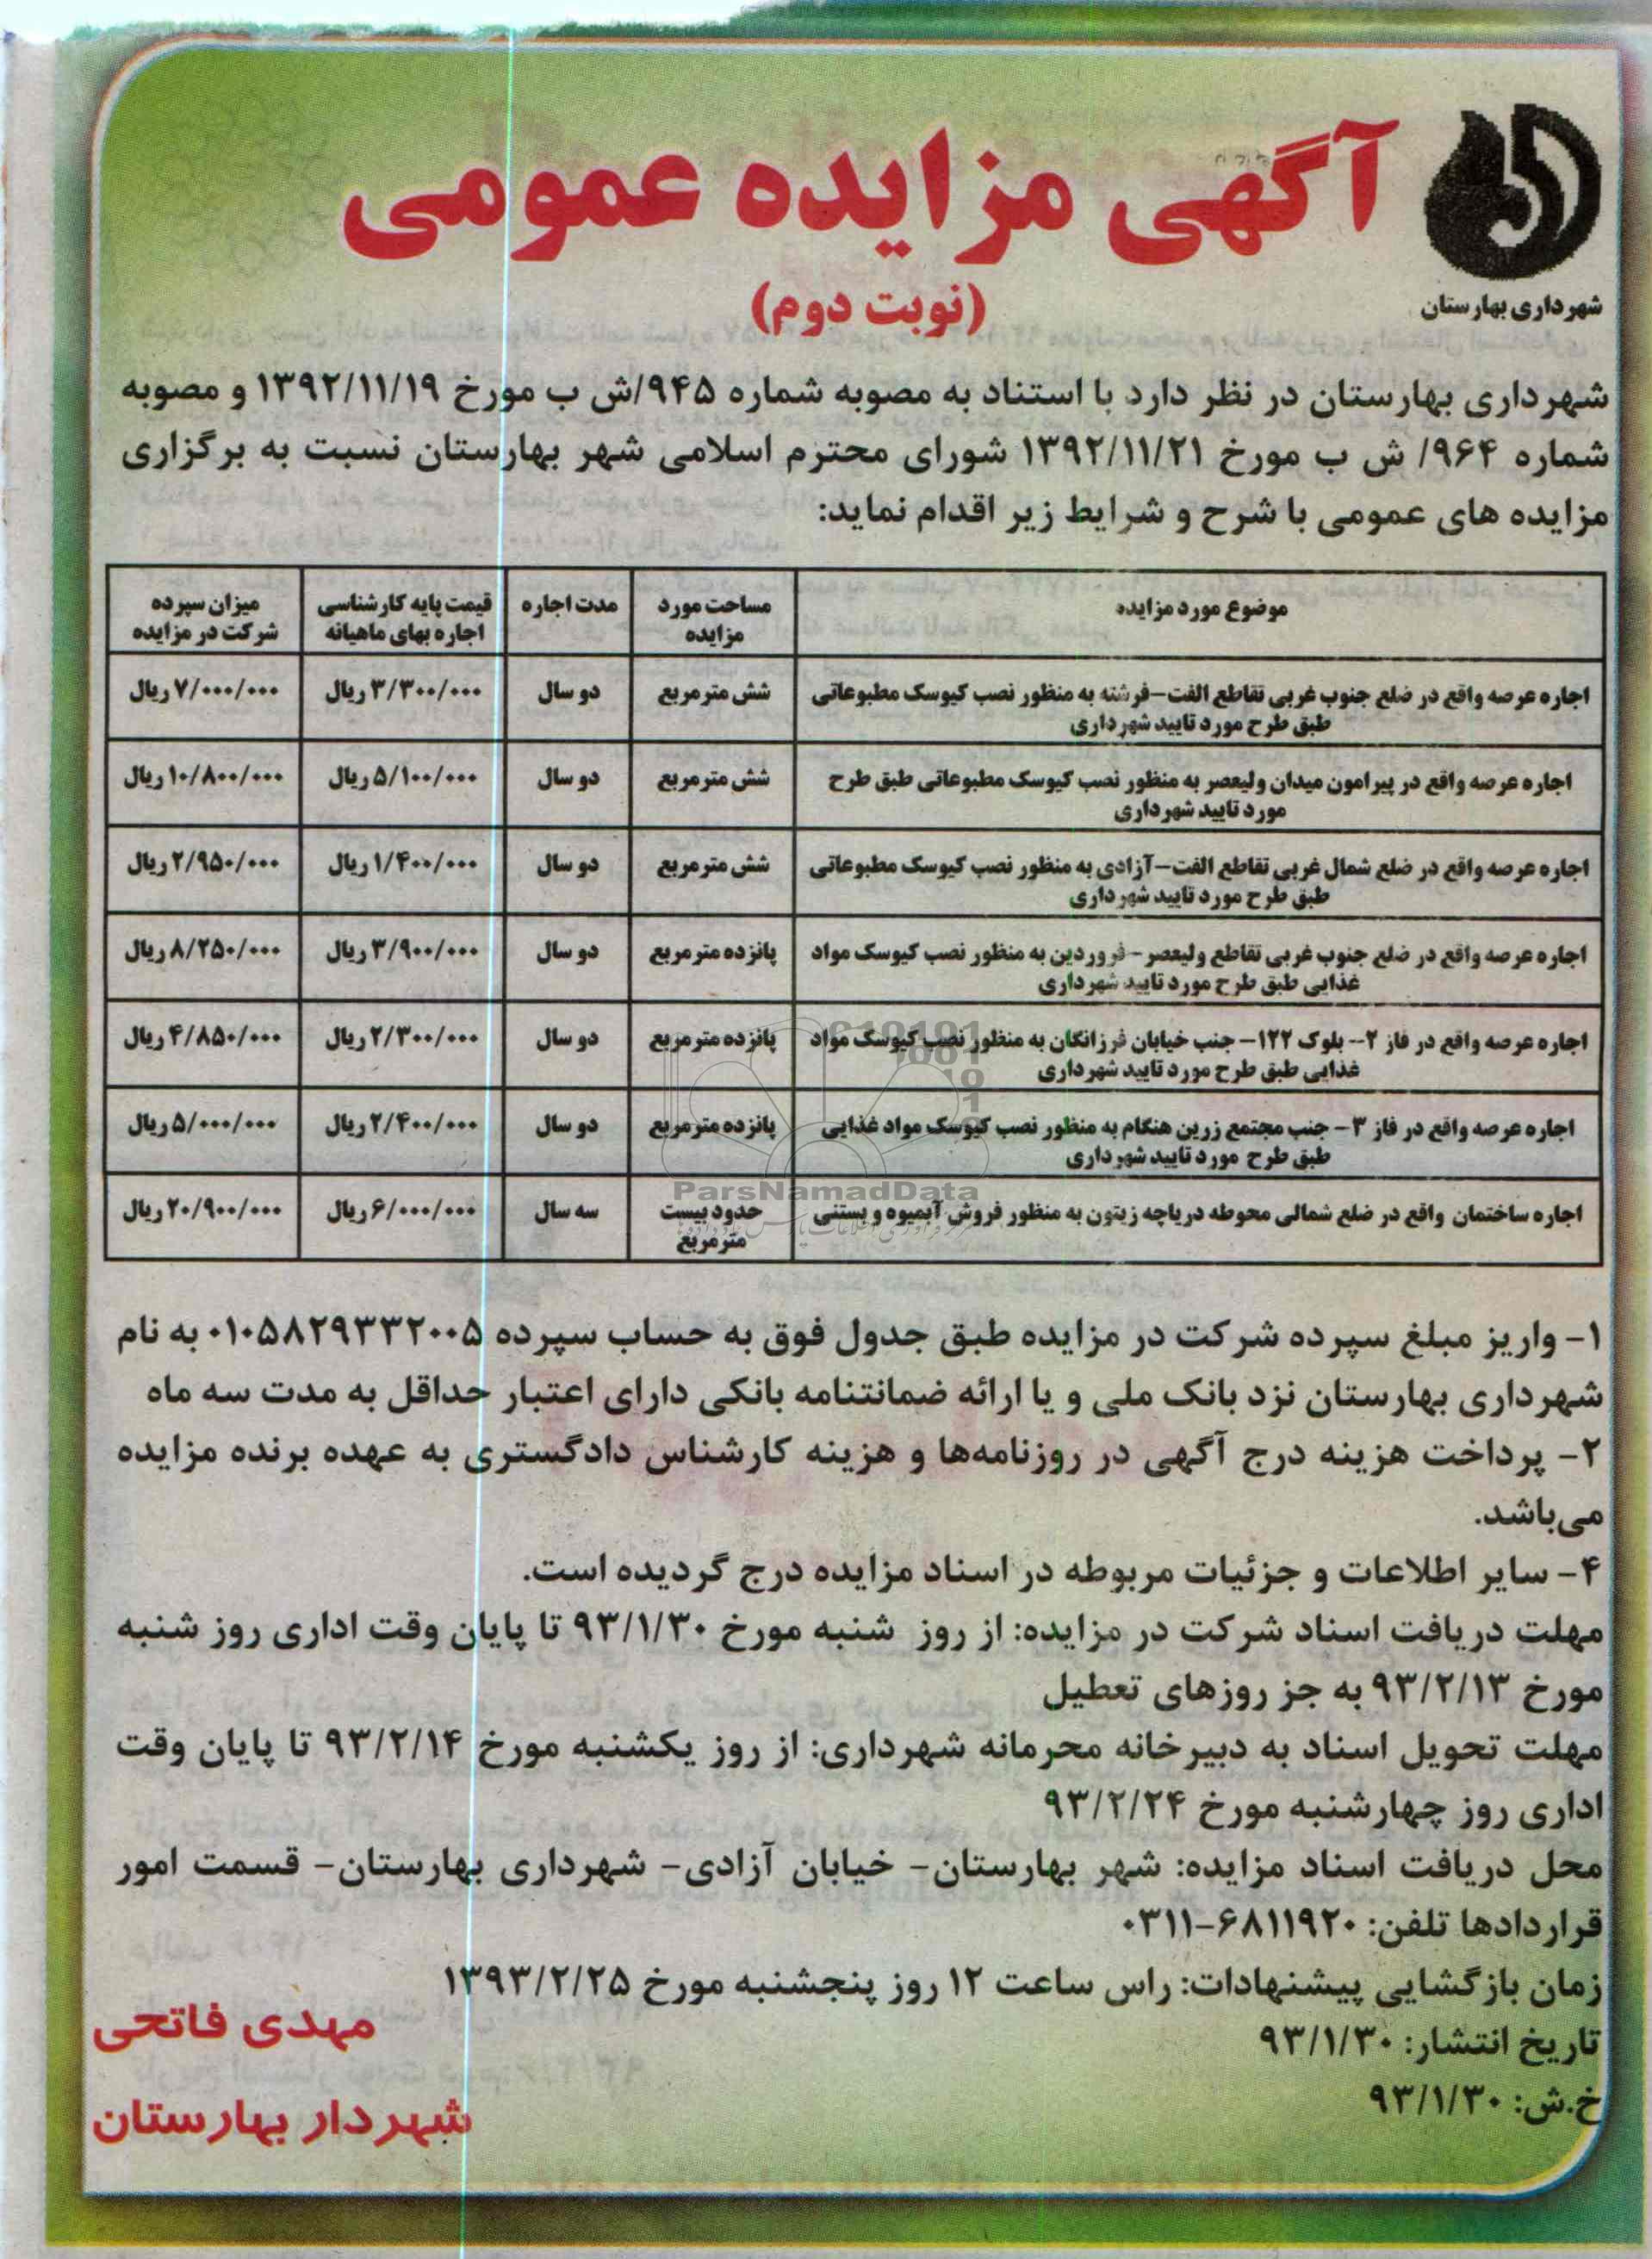 آگهی مزایده عمومی
(نوبت دوم)
شهرداری بهارستان
شهرداری بهارستان در نظر دارد با استناد به مصوبه شماره ۹۴۵/ش ب مورخ ۱۳۹۲/۱۱/۱۹ و مصوبه
شماره ۹۶۴/ ش ب مورخ ۱۳۹۲/۱۱/۲۱ شورای محترم اسلامی شهر بهارستان نسبت به برگزاری
مزایده های عمومی با شرح و شرایط زیر اقدام نماید:
موضوع مورد مزایده | مساحت مورد مزایده | مدت اجاره | قیمت پایه کارشناسی اجاره بهای ماهیانه | میزان سپرده شرکت در مزایده
اجاره عرصه واقع در ضلع جنوب غربی تقاطع الفت-فرشته به منظور نصب کیوسک مطبوعاتی طبق طرح مورد تایید شهرداری | شش مترمربع | دو سال | ۳/۳۰۰/۰۰۰ ریال | ۷/۰۰۰/۰۰۰ ریال
اجاره عرصه واقع در پیرامون میدان ولیعصر به منظور نصب کیوسک مطبوعاتی طبق طرح مورد تایید شهرداری | شش مترمربع | دو سال | ۵/۱۰۰/۰۰۰ ریال | ۱۰/۸۰۰/۰۰۰ ریال
اجاره عرصه واقع در ضلع شمال غربی تقاطع الفت-آزادی به منظور نصب کیوسک مطبوعاتی طبق طرح مورد تایید شهرداری | شش مترمربع | دو سال | ۱/۴۰۰/۰۰۰ ریال | ۲/۹۵۰/۰۰۰ ریال
اجاره عرصه واقع در ضلع جنوب غربی تقاطع ولیعصر-فروردین به منظور نصب کیوسک مواد غذایی طبق طرح مورد تایید شهرداری | پانزده مترمربع | دو سال | ۳/۹۰۰/۰۰۰ ریال | ۸/۲۵۰/۰۰۰ ریال
اجاره عرصه واقع در فاز ۲-- بلوک ۱۲۲- جنب خیابان فرزانگان به منظور نصب کیوسک مواد غذایی طبق طرح مورد تایید شهرداری | پانزده مترمربع | دو سال | ۲/۳۰۰/۰۰۰ ریال | ۴/۸۵۰/۰۰۰ ریال
اجاره عرصه واقع در فاز ۳- جنب مجتمع زرین هنگام به منظور نصب کیوسک مواد غذایی طبق طرح مورد تایید شهرداری | پانزده مترمربع | دو سال | ۲/۴۰۰/۰۰۰ ریال | ۵/۰۰۰/۰۰۰ ریال
اجاره ساختمان واقع در ضلع شمالی محوطه دریاچه زیتون به منظور فروش آبمیوه و بستنی | حدود بیست مترمربع | سه سال | ۶/۰۰۰/۰۰۰ ریال | ۲۰/۹۰۰/۰۰۰ ریال
ParsNamadData
۱- واریز مبلغ سپرده شرکت در مزایده طبق جدول فوق به حساب سپرده ۰۱۰۵۸۲۹۳۳۲۰۰۵ به نام
شهرداری بهارستان نزد بانک ملی و یا ارائه ضمانتنامه بانکی دارای اعتبار حداقل به مدت سه ماه
۲- پرداخت هزینه درج آگهی در روزنامه‌ها و هزینه کارشناس دادگستری به عهده برنده مزایده
می‌باشد.
۴- سایر اطلاعات و جزئیات مربوطه در اسناد مزایده درج گردیده است.
مهلت دریافت اسناد شرکت در مزایده: از روز شنبه مورخ ۹۳/۱/۳۰ تا پایان وقت اداری روز شنبه
مورخ ۹۳/۲/۱۳ به جز روزهای تعطیل
مهلت تحویل اسناد به دبیرخانه محرمانه شهرداری: از روز یکشنبه مورخ ۹۳/۲/۱۴ تا پایان وقت
اداری روز چهارشنبه مورخ ۹۳/۲/۲۴
محل دریافت اسناد مزایده: شهر بهارستان- خیابان آزادی- شهرداری بهارستان- قسمت امور
قراردادها تلفن: ۶۸۱۱۹۲۰-۰۳۱۱
زمان بازگشایی پیشنهادات: راس ساعت ۱۲ روز پنجشنبه مورخ ۱۳۹۳/۲/۲۵
تاریخ انتشار: ۹۳/۱/۳۰
خ.ش: ۹۳/۱/۳۰
مهدی فاتحی
شهردار بهارستان